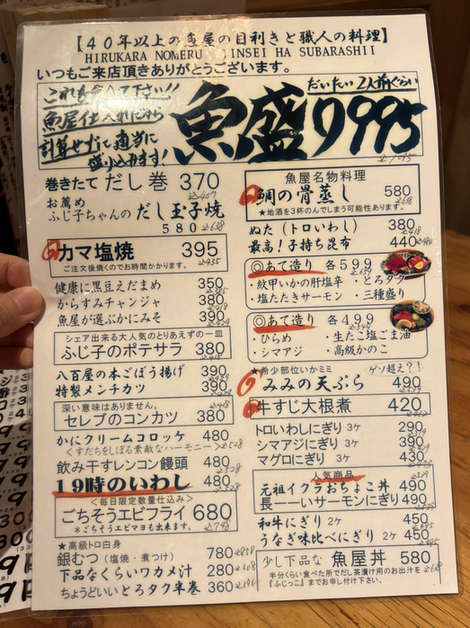 【４０年以上の魚屋の目利きと職人の料理】
HIRUKARA NOMERU JINSEI HA SUBARASHII
いつもご来店頂きありがとうございます。
これを食べて下さい!!
魚屋仕入れだから
計算せずに適当に
盛り込みます!
だいたい2人前ぐらい
魚盛り995
巻きたて だし巻 370
お薦め
ふじ子ちゃんの だし玉子焼
580
カマ塩焼 395
ご注文後焼くのでお時間かかります。
健康に黒豆えだまめ 350
からすみチャンジャ 380
魚屋が選ぶかにみそ 390
シェア出来る大人気のとりあえずの一皿
ふじ子のポテサラ 380
八百屋の本ごぼう揚げ 390
特製メンチカツ 390
深い意味はありません。
セレブのコンカツ 380
かにクリームコロッケ 480
<すだちをしぼる素敵なハーモニー>
飲み干すレンコン饅頭 480
19時のいわし 480
<毎日限定数量仕込み>
ごちそうエビフライ 680
*ごちそうエビマヨも出来ます。
★高級トロ白身
銀むつ (塩焼・煮つけ) 780
下品なくらいワカメ汁 280
ちょうどいいとろタク半巻 360
魚屋名物料理
鯛の骨蒸し 580
★地酒を3杯のんでしまう可能性あります。
ぬた (トロいわし) 380
最高！子持ち昆布 440
◎あて造り 各５９９
・紋甲いかの肝塩辛 ・とろタク
・塩たたきサーモン ・三種盛り
◎あて造り 各４９９
・ひらめ ・生たこ塩ごま油
・シマアジ ・高級かのこ
★希少部位いかミミ ゲソ超え?!
みみの天ぷら 490
牛すじ大根煮 420
トロいわしにぎり 3ケ 290
シマアジにぎり 3ケ 430
マグロにぎり 3ケ 430
人気商品
元祖イクラおちょこ丼 490
長ーいサーモンにぎり 490
和牛にぎり 2ケ 450
うなぎ味比べにぎり 2ケ 450
少し下品な 魚屋丼 580
半分くらい食べた所でだし茶漬け用のお出汁を
『ふじっこ』までお申し付け下さい。